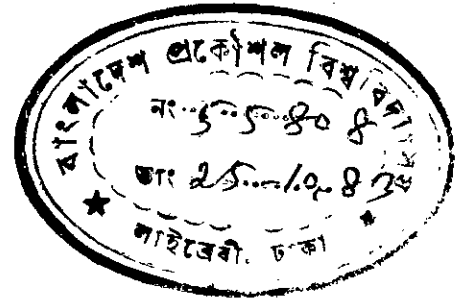 বাংলাদেশ প্রকৌশল বিশ্ববিদ্যালয়
নং
তাং 25...10.83
লাইব্রেরী, ঢাকা